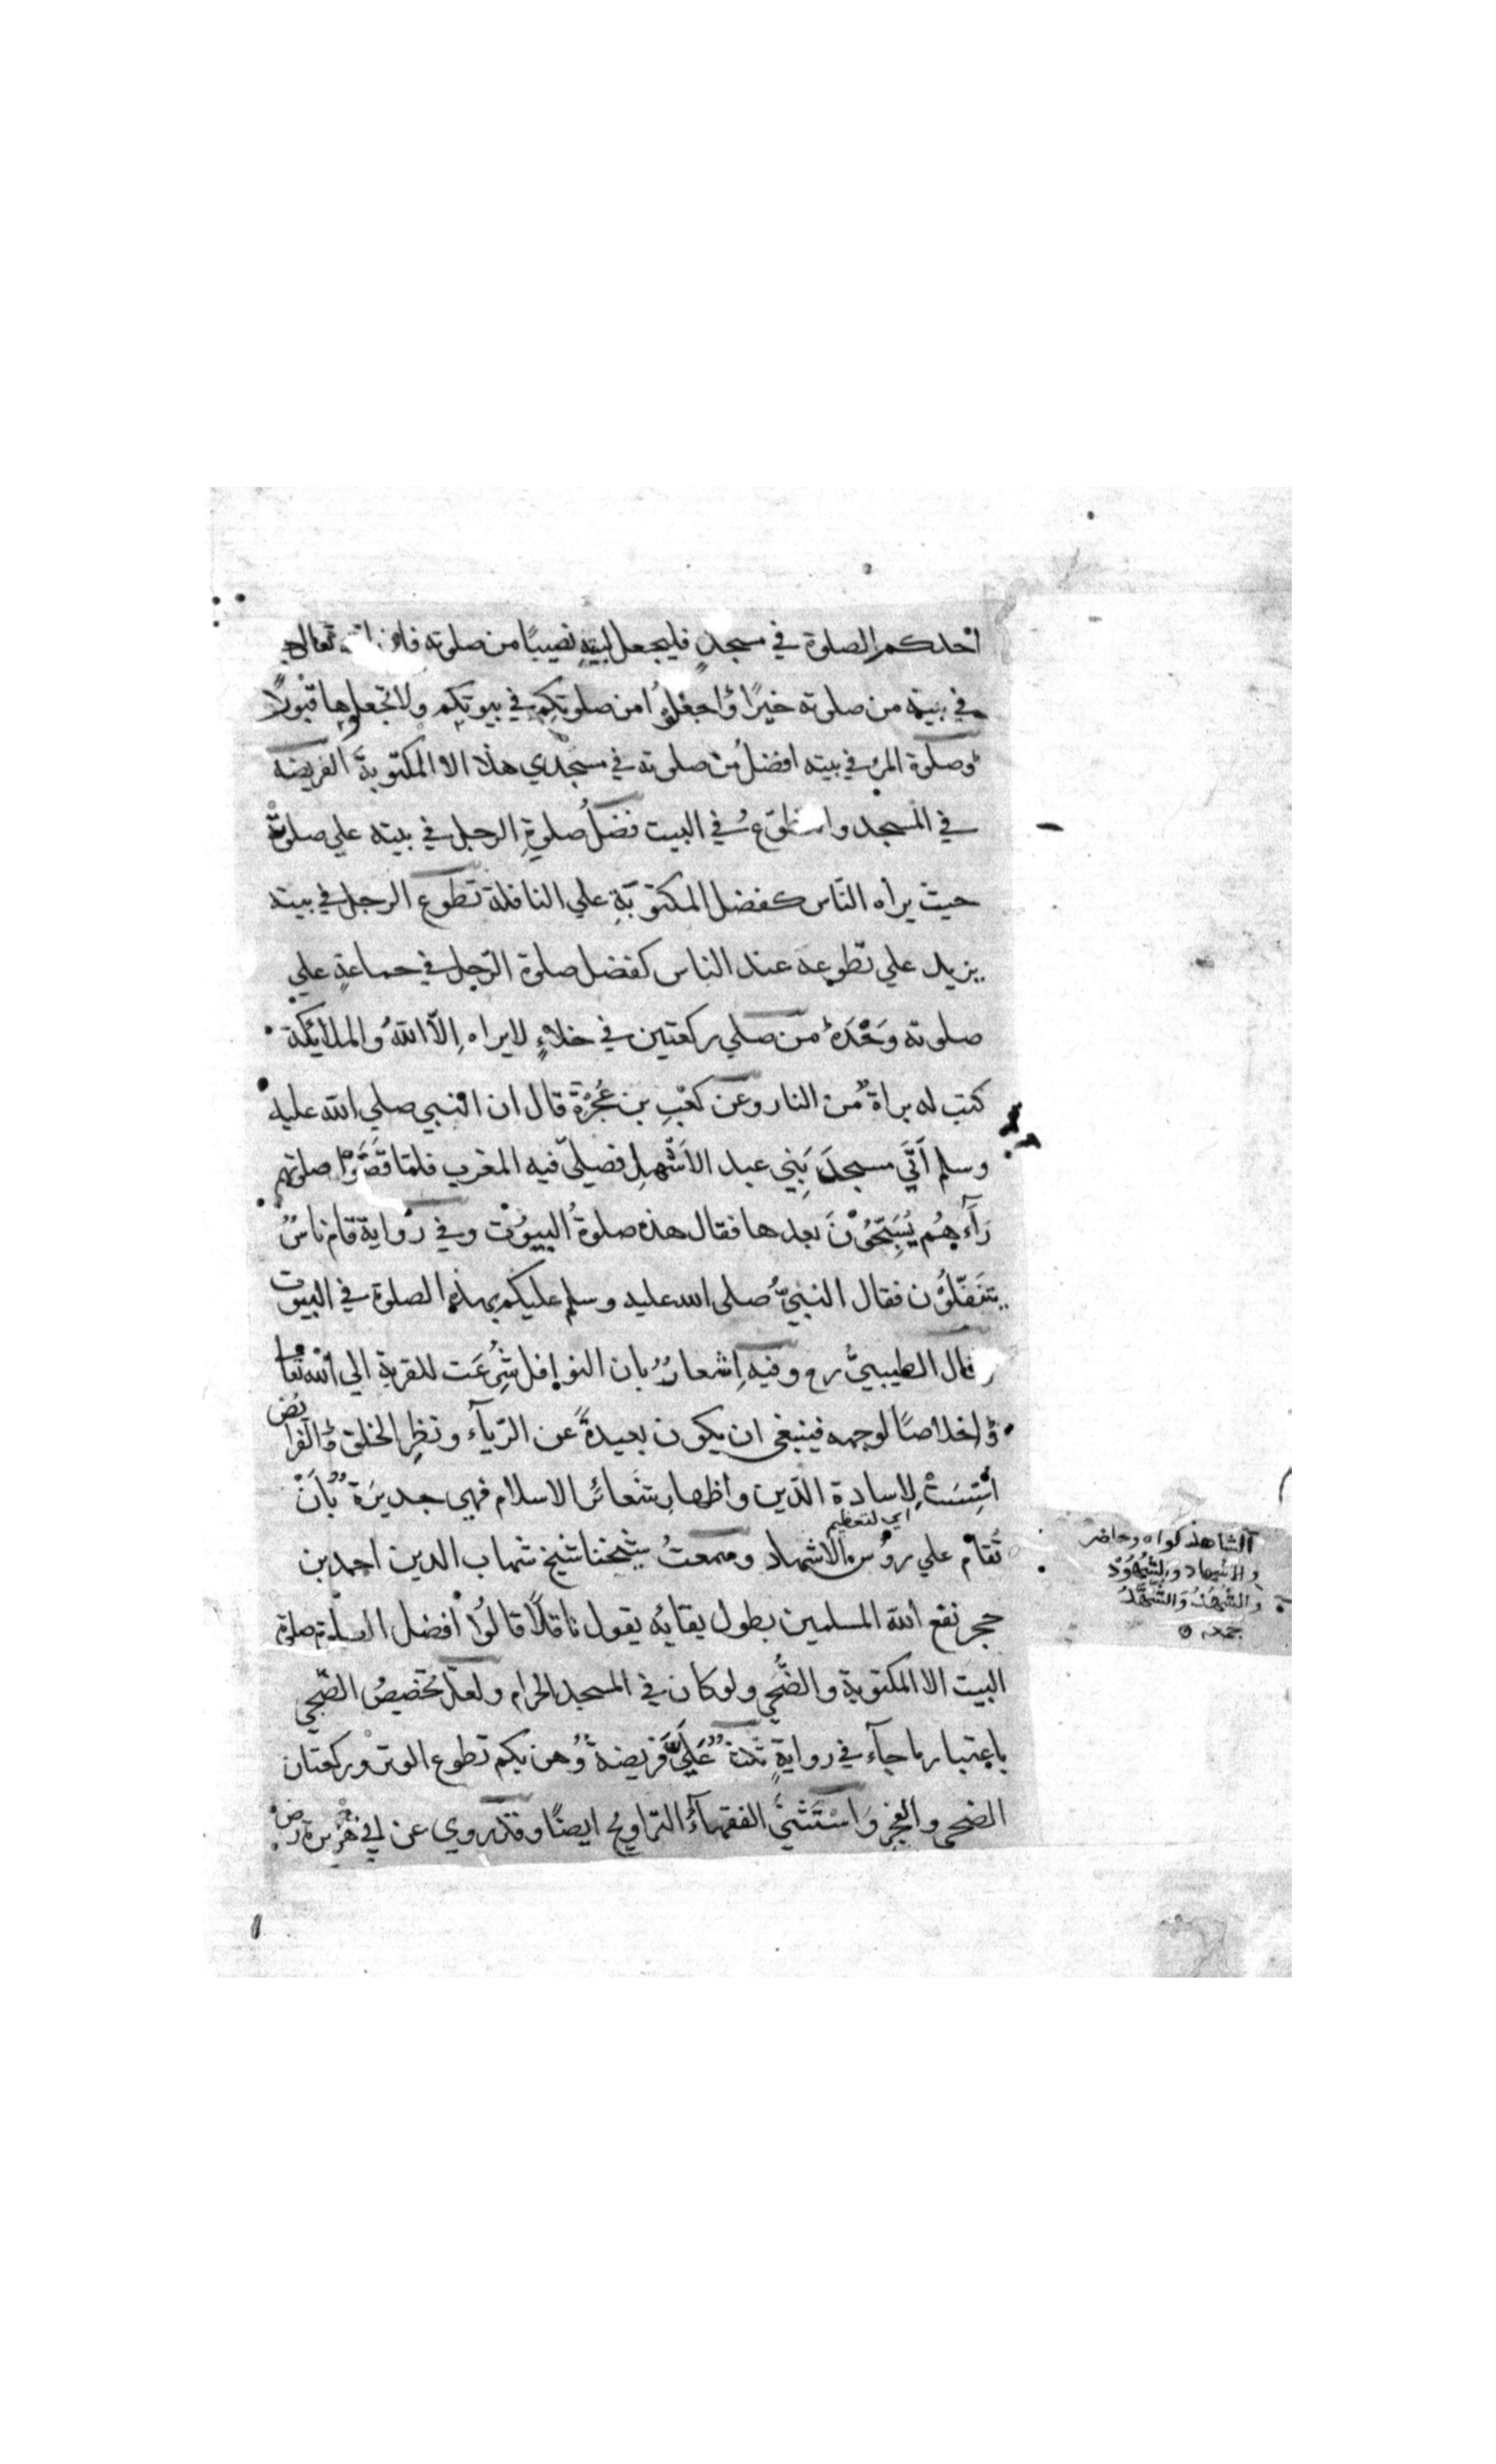 احدكم الصلوة في مسجدٍ فليجعل لبيتهِ نصيبًا من صلوته فان تعالي
في بيته من صلوته خيرًا وُاجعلوُا من صلوتكم في بيوتكم ولا تجعلوها قبُولًا
وصلوة المرُ في بيته افضلُ من صلوته في مسجدي هذا الا المكتوبةَ الفريضة
في المسجد والتطوّعُ في البيت فضلُ صلوةِ الرجل في بيته علي صلوته
حيث يراه النّاس كفضل المكتوبَةِ علي النافلة تطوع الرجل في بيته
يزيد علي تطوعه عند الناس كفضل صلوة الرّجل في جماعةٍ علي
صلوته وَحْدَهُ من صلي ركعتين في خلاءٍ لا يراه اِلّا اللّهُ والملائكة
كتب له براةٌ من النار وعن كعْبِ بن عُجْرَة قال ان النبي صلي الله عليه
وسلم اَتَي مسجدَ بَنِي عبد الاَشْهلِ فصليّ فيه المغرب فلمّا قَضَوْا صلوتهم
رَآءَهُم يُسَبِّحُوْنَ بعدها فقال هذه صلوةُ البيُوْت وفي رواية قام ناسٌ
يتنفّلوُن فقال النبيُّ صلى الله عليه وسلم عليكم بهذه الصلوة في البيوت
وقال الطيبيُّ رح وفيه اِشعارٌ بان النوافل شُرِعَت للقربة الي اللّه تعا
وُاخلاصًا لوجهه فينبغي ان يكون بعيدةً عن الرّيآء ونظرِ الخلق والفرائض
اُسِّسَتْ لاسادة الدّين واظهارِ شعائر الاسلام فهي جديرَةٌ باَنْ
اي لتعظيم
تُقام علي روُس الاشهاد وسمعتُ شيخنا شيخ شهاب الدين احمد بن
حجر نفع اللّه المسلمين بطول بقايُه يقول ناقلًا قالُوا افضل الصلوة صلوة
البيت الا المكتوبة والضُّحَي ولو كان في المسجد الحرام ولعلّ تخصيصُ الضّحي
باعتبار ما جآء في روايةٍ ثلثةٌ عَلَيَّ فريضةٌ وُهن بكم تطوع الوتر وركعتان
الضحي والفجر وَاسْتَثْنَي الفقهآءُ التّراويح ايضًا وقد روي عن ابي هريرة رض
الشاهد كواه وحاضر
والاشهاد والشُهُوْد
والشُهدُ وَالشُّهَّدُ
جمعه